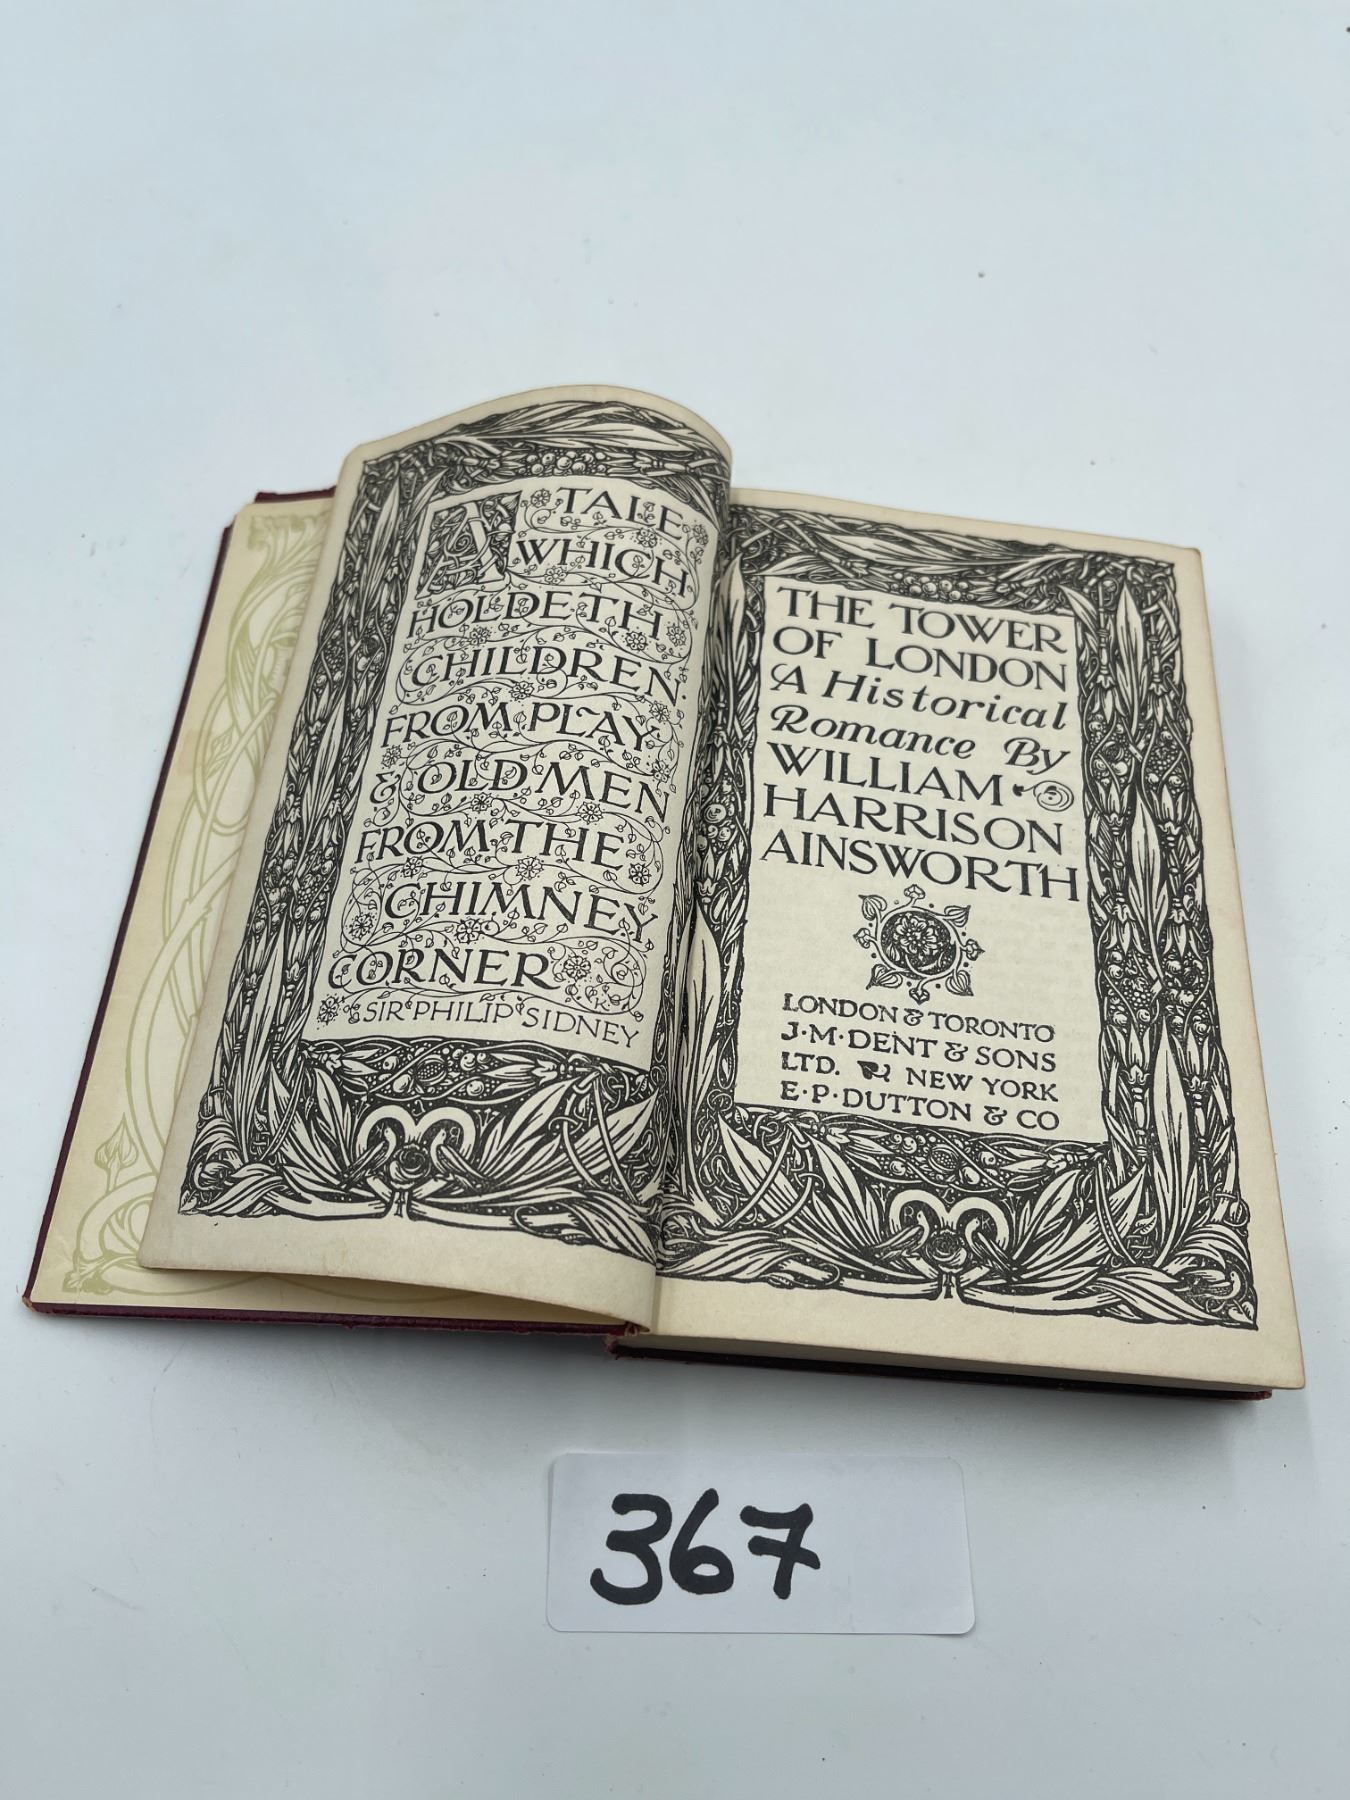 A TALE
WHICH
HOLDETH
CHILDREN
FROM PLAY
& OLD MEN
FROM THE
CHIMNEY
CORNER
SIR PHILIP SIDNEY
THE TOWER
OF LONDON
A Historical
Romance By
WILLIAM
HARRISON
AINSWORTH
LONDON & TORONTO
J·M·DENT & SONS
LTD. NEW YORK
E·P·DUTTON & CO
367